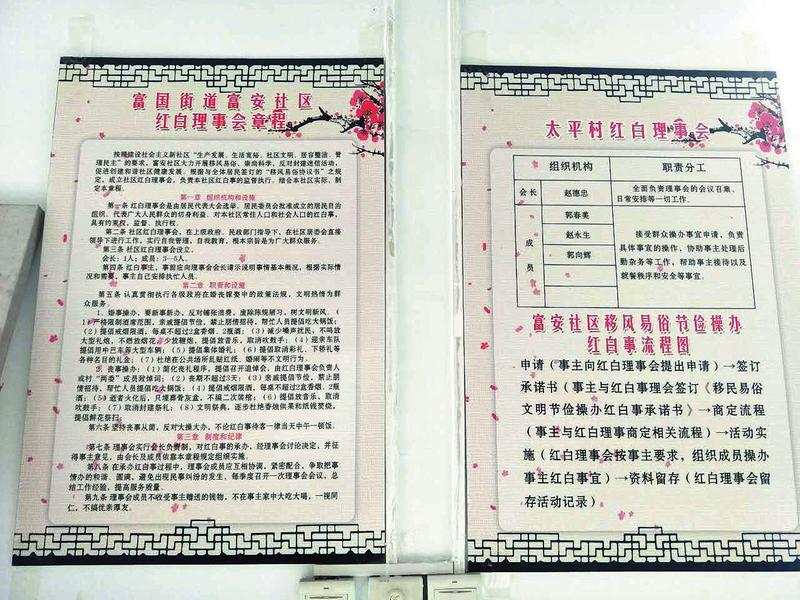 富国街道富安社区
红白理事会章程
按照建设社会主义新社区“生产发展、生活宽裕、社区文明、居容整洁、管
理民主”的要求，富安社区大力开展移风易俗、崇尚科学、反对封建迷信活动，
促进创建和谐社区健康发展。根据与全体居民签订的“移风易俗协议书”之规
定，成立社区红白理事会，负责本社区红白事的监督执行。结合本社区实际，制
定本章程。
第一章 组织机构和设施
第一条 红白理事会是由居民代表大会选举、居民委员会批准成立的居民自治
组织，代表广大人民群众的切身利益，对本社区常住人口和社会人口的红白事，
具有约束权、监督、执行权。
第二条 社区红白理事会，在上级政府、民政部门指导下，在社区居委会直接
领导下进行工作，实行自我管理，自我教育，根本宗旨是为广大群众服务。
第三条 社区红白理事会设立。
会长：1人；成员：3—5人。
第四条 红白事主，事前应向理事会会长请示说明事情基本概况，根据实际情
况和需要，事主自己安排执忙人员。
第二章 职责和设施
第五条 认真贯彻执行各级政府在婚丧嫁娶中的政策法规，文明热情为群
众服务。
1、婚事操办，要新事新办，反对铺张浪费，废除陈规陋习，树文明新风。（
1）严格限制酒席范围，亲戚提倡节俭，禁止朋情招待，帮忙人员提倡吃大锅饭；
（2）提倡戒烟限酒，每桌不超过2盒香烟、2瓶酒；（3）减少噪声扰民，不鸣放
大型礼炮，不燃放烟花，少放鞭炮，提倡放音乐，取消吹鼓手；（4）迎亲车队
提倡用中巴车等大型车辆；（5）提倡集体婚礼；（6）提倡取消彩礼、下轿礼等
各种名目的礼金；（7）杜绝在公共场所乱贴红纸、婚闹等不文明行为。
2、丧事操办：（1）简化丧礼程序，提倡召开追悼会，由红白理事会负责人
或村“两委”成员致悼词；（2）丧期不超过3天；（3）亲戚提倡节俭，禁止朋
情招待，帮忙人员提倡吃大锅饭；（4）提倡戒烟限酒，每桌不超过2盒香烟、2瓶
酒；（5）逝者火化后，只埋葬骨灰盒，不搞二次装棺；（6）提倡放音乐，取消
吹鼓手；（7）取消封建祭礼；（8）文明祭典，逐步杜绝香烛供果和纸钱焚烧，
提倡鲜花祭扫；
第六条 坚持丧事从简，反对大操大办，不论红白事待客一律当天中午一顿饭。
第三章 制度和纪律
第七条 理事会实行会长负责制，对红白事的承办，经理事会讨论决定，并征
得事主意见，由会长及成员依靠本章程规定组织实施。
第八条 在承办红白事过程中，理事会成员应互相协调，紧密配合，争取把事
情办的和谐、圆满，避免出现民事纠纷的发生，每季度召开一次理事会会议，总
结工作经验，提高服务质量。
第九条 理事会成员不收受事主赠送的钱物，不在事主家中大吃大喝，一视同
仁，不搞优亲厚友。
太平村红白理事会
组织机构 职责分工
会长 赵德忠 全面负责理事会的会议召集、
日常安排等一切工作。
成员 郭春美
赵永生
郭向辉
接受群众操办事宜申请，负责
具体事宜的操作，协助事主处理后
勤杂务等工作，帮助事主接待以及
就餐秩序和安全等事宜。
富安社区移风易俗节俭操办
红白事流程图
申请（事主向红白理事会提出申请）→签订
承诺书（事主与红白事理会签订《移民易俗
文明节俭操办红白事承诺书》→商定流程
（事主与红白理事会商定相关流程）→活动实
施（红白理事会按事主要求，组织成员操办
事主红白事宜）→资料留存（红白理事会留
存活动记录）